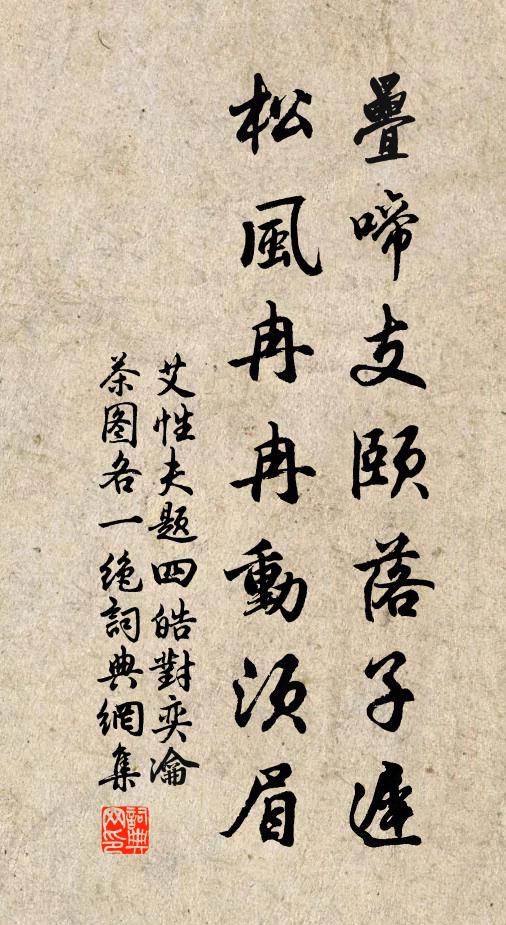 疊啼支頤落子遲
松風冉冉動須眉
艾性夫題四皓對奕瀹
茶圖各一絶詞典網集
詞典網印